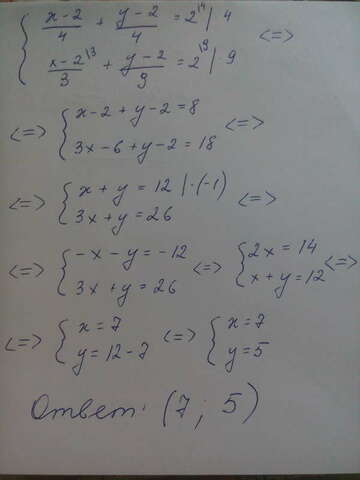 { x-2/4 + y-2/4 = 2^{\4} | 4 <=>
{ x-2^{\3}/3 + y-2/9 = 2^{\9} | 9
<=> { x-2+y-2=8 <=>
{ 3x-6+y-2=18
<=> { x+y=12 |·(-1) <=>
{ 3x+y=26
<=> { -x-y=-12 <=> { 2x=14 <=>
{ 3x+y=26 { x+y=12
<=> { x=7 <=> { x=7
{ y=12-7 { y=5
Ответ: (7; 5)